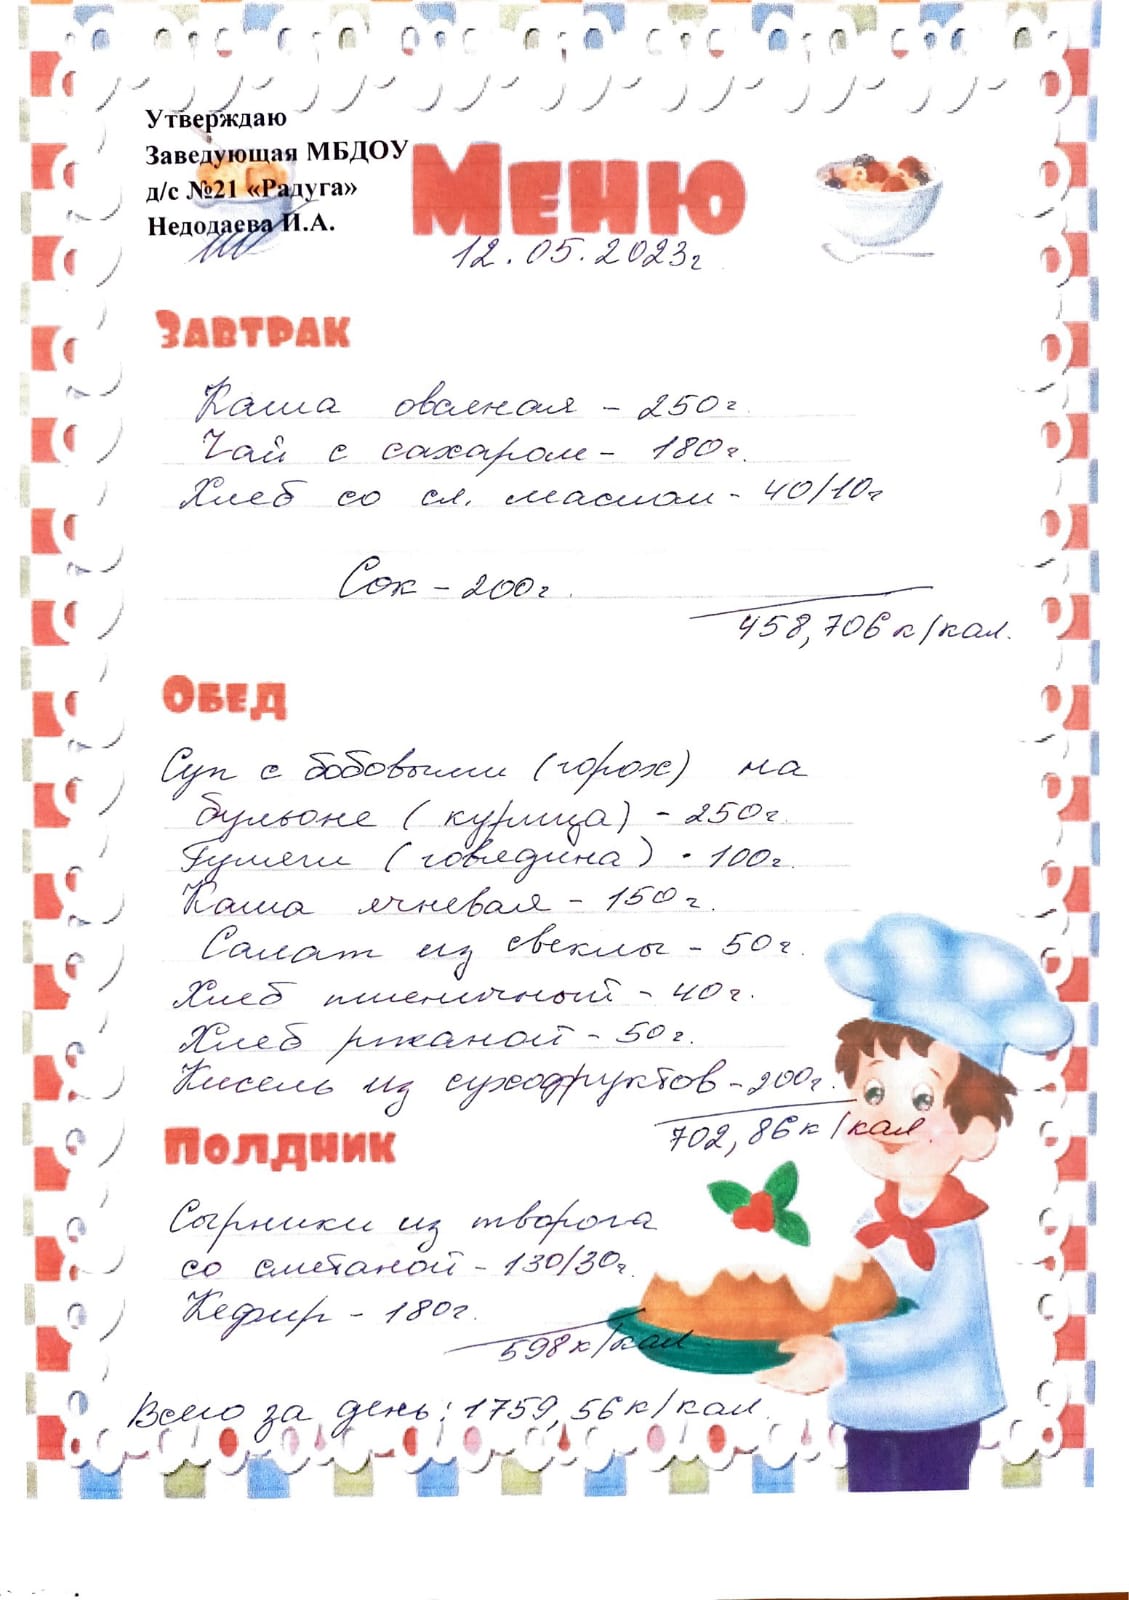 Утверждаю
Заведующая МБДОУ
д/с №21 «Радуга»
Недодаева И.А.
Меню
12.05.2023г
Завтрак
Каша овсяная - 250г.
Чай с сахаром - 180г.
Хлеб со сл. маслом - 40/10г
Сок - 200г.
458,706 к/кал.
Обед
Суп с бобовыми (горох) на
бульоне (курица) - 250г.
Гуляш (говядина) - 100г.
Каша ячневая - 150г.
Салат из свеклы - 50г.
Хлеб пшеничный - 40г.
Хлеб ржаной - 50г.
Кисель из сухофруктов - 200г.
702,86 к/кал.
Полдник
Сырники из творога
со сметаной - 130/30г.
Кефир - 180г.
598 к/кал
Всего за день: 1759,56 к/кал.